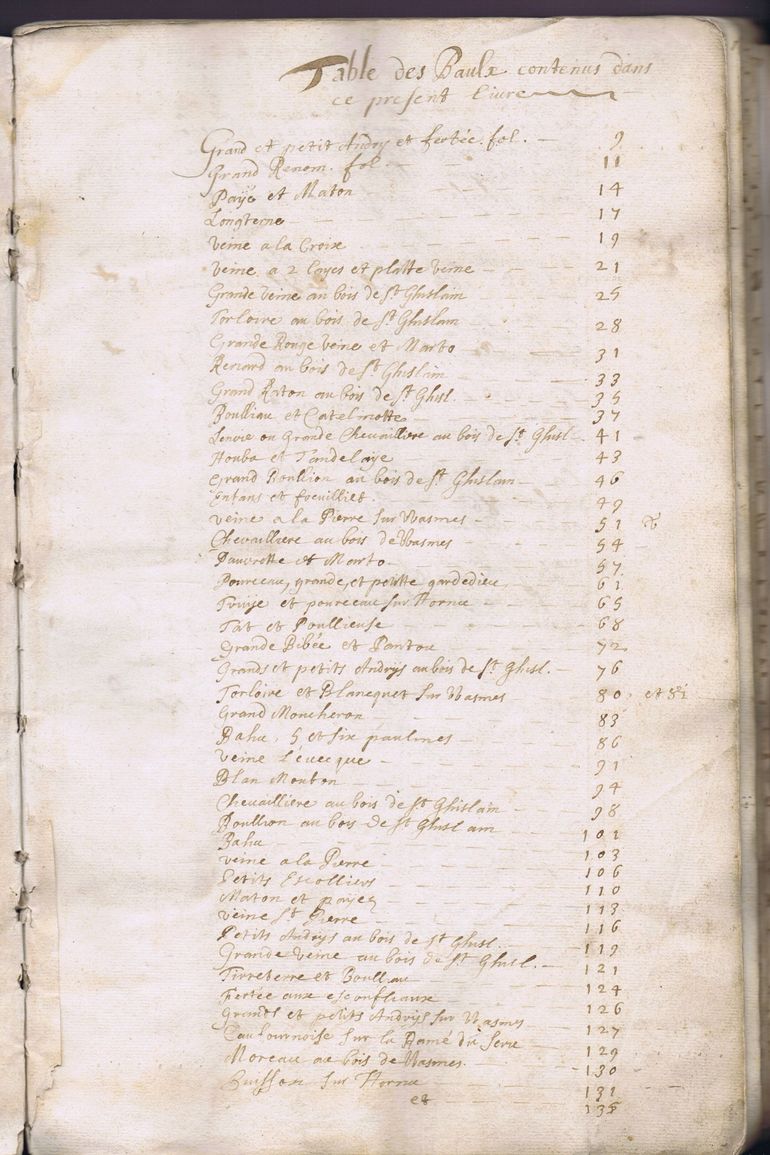 Table des Baulx contenus dans
ce present livre
Grand et petit Andry et fertée. fol. 9
Grand Renom. fol. 11
Payë et Maton 14
Longterne 17
veine a la Croix 19
veine a 2 layes et platte veine 21
Grande veine au bois de St Ghislain 25
Torloire au bois de St Ghislain 28
Grande Rouge veine et Marto 31
Renard au bois de St Ghislain 33
Grand Raton au bois de St Ghisl. 35
Boulliau et Catelinotte 37
Lenvie ou Grande Chevailliere au bois de St Ghisl 41
Houba et Tandelaye 43
Grand Bouillion au bois de St Ghislain 46
Enfans et foeuilliet. 49
veine a la Pierre sur Wasmes 51
Chevailliere au bois de Wasmes 54
Pauvrette et Marto 57
Pourceau, grande, et petitte gardedieu 61
Truÿe et pourceau sur Hornu 65
Tat et Poullieuse 68
Grande Bibée et Pantou 72
Grands et petits Andrÿs au bois de St Ghisl. 76
Torloire et Blancquet sur Wasmes 80 et 81
Grand Moucheron 83
Bahu, 5 et six paulmes 86
veine l'évecque 91
Blan Mouton 94
Chevailliere au bois de St Ghislain 98
Bouillion au bois de St Ghislain 101
Bahu 103
veine a la Pierre 106
Petits Escolliers 110
Maton et payez 113
veine St Pierre 116
Petits Andrÿs au bois de St Ghisl. 119
Grande veine au bois de St Ghisl. 121
Tirreterre et Boulleau 124
fertée aux esconfliaux 126
Grands et petits Andrÿs sur Wasmes 127
Caufournoise sur la Hamé du Seru 129
Moreau au bois de Wasmes. 130
Buisson sur Hornu 131
et 135